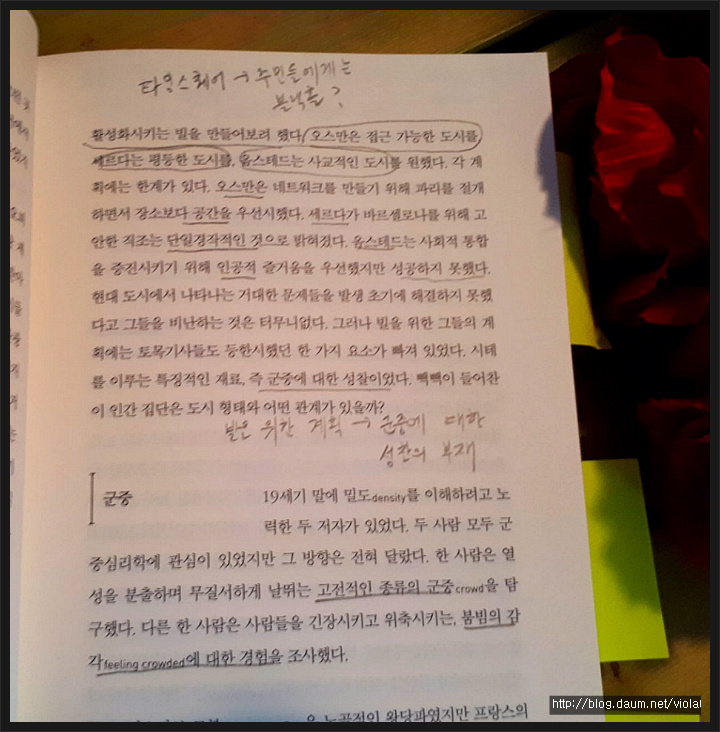 타임스퀘어 → 주민들에게는
블랙홀?
활성화시키는 빌을 만들어보려 했다. 오스만은 접근 가능한 도시를,
세르다는 평등한 도시를, 옴스테드는 사교적인 도시를 원했다. 각 계
획에는 한계가 있다. 오스만은 네트워크를 만들기 위해 파리를 절개
하면서 장소보다 공간을 우선시했다. 세르다가 바르셀로나를 위해 고
안한 직조는 단일경작적인 것으로 밝혀졌다. 옴스테드는 사회적 통합
을 증진시키기 위해 인공적 즐거움을 우선했지만 성공하지 못했다.
현대 도시에서 나타나는 거대한 문제들을 발생 초기에 해결하지 못했
다고 그들을 비난하는 것은 터무니없다. 그러나 빌을 위한 그들의 계
획에는 토목기사들도 등한시했던 한 가지 요소가 빠져 있었다. 시테
를 이루는 특징적인 재료, 즉 군중에 대한 성찰이었다. 빽빽이 들어찬
이 인간 집단은 도시 형태와 어떤 관계가 있을까?
빌을 위한 계획 → 군중에 대한
성찰의 부재
군중
19세기 말에 밀도density를 이해하려고 노
력한 두 저자가 있었다. 두 사람 모두 군
중심리학에 관심이 있었지만 그 방향은 전혀 달랐다. 한 사람은 열
성을 분출하며 무질서하게 날뛰는 고전적인 종류의 군중crowd을 탐
구했다. 다른 한 사람은 사람들을 긴장시키고 위축시키는, 붐빔의 감
각feeling crowded에 대한 경험을 조사했다.
은 노골적인 왕당파였지만 프랑스의
http://blog.daum.net/viola